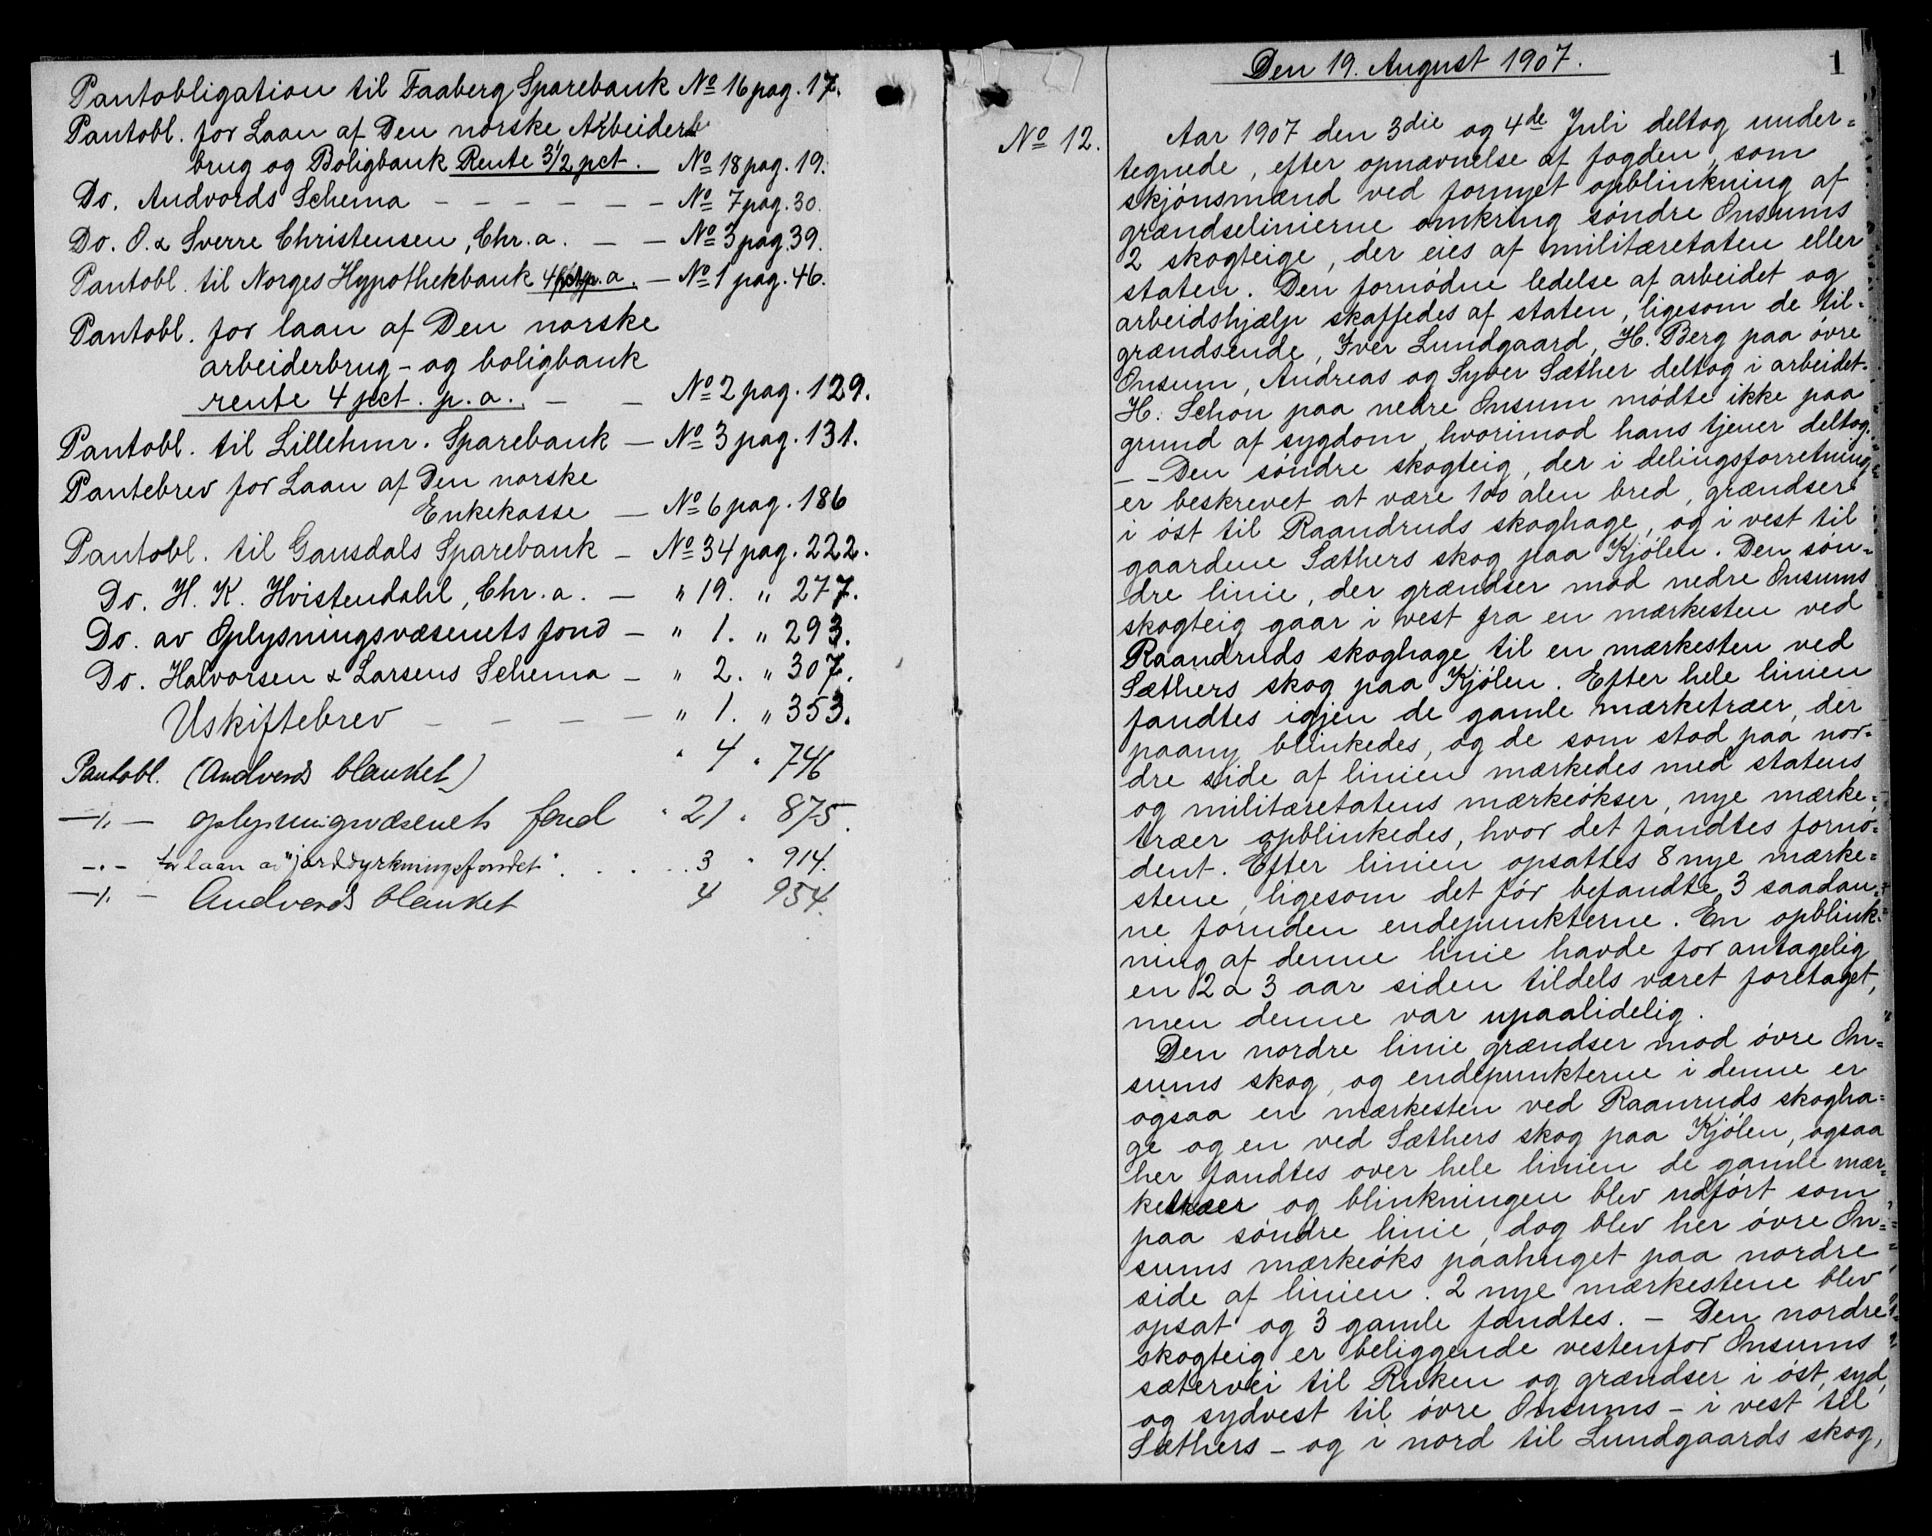 Pantobligation til Faaberg Sparebank No 16 pag. 17.
Pantobl. for Laan af Den norske Arbeider
brug og Boligbank Rente 3 1/2 pct. No 18 pag. 19.
Do. Andvords Schema - - - - - - No 7 pag. 30.
Do. O. & Sverre Christensen, Chr.a. - - No 3 pag. 39.
Pantobl. til Norges Hypothekbank 4 p.a. - No 1 pag. 46.
Pantobl. for laan af Den norske
arbeiderbrug - og boligbank
rente 4 pct. p. a. - - No 2 pag. 129.
Pantobl. til Lillehmr. Sparebank - No 3 pag. 131.
Pantebrev for Laan af Den norske
Enkekasse - No 6 pag. 186
Pantobl. til Gausdals Sparebank - No 34 pag. 222.
Do. H. K. Hvistendahl, Chr.a. - " 19. " 277.
Do. av Oplysningsvæsenets fond - " 1. " 293.
Do. Halvorsen & Larsens Schema - " 2. " 307.
Uskiftebrev - - - - " 1. " 353.
Pantobl. (Andvords blanket) " 4 " 746
-"- oplysningsvæsenets fond " 21 " 875.
-"- for laan av "jorddyrkningsfondet" . . . . 3 " 914.
-"- Andvords blanket 4 954.
1
Den 19. August 1907.
No 12.
Aar 1907 den 3die og 4de Juli deltog under=
tegnede, efter opnævnelse af fogden, som
skjønsmænd ved fornyet opblinkning af
grændselinierne omkring søndre Onsums
2 skogteige, der eies af militæretaten eller
staten. Den fornødne ledelse af arbeidet og
arbeidshjælp skaffedes af staten, ligesom de til=
grændsende, Iver Lundgaard, H. Berg paa øvre
Onsum, Andreas og Syver Sæther deltog i arbeidet.
H. Schon paa nedre Onsum mødte ikke paa
grund af sygdom, hvorimod hans tjener deltog.
- - Den søndre skogteig, der i delingsforretning
er beskrevet at være 100 alen bred, grændser
i øst til Raandruds skoghage, og i vest til
gaardene Sæthers skog paa Kjølen. Den søn=
dre linie, der grændser mod nedre Onsums
skogteig gaar i vest fra en mærkesten ved
Raandruds skoghage til en mærkesten ved
Sæthers skog paa Kjølen. Efter hele linien
fandtes igjen de gamle mærketræer, der
paany blinkedes, og de som stod paa nor=
dre side af linien mærkedes med statens
og militæretatens mærkeøkser, nye mærke=
træer opblinkedes, hvor det fandtes fornø=
dent. Efter linien opsattes 8 nye mærke=
stene, ligesom det før befandtes 3 saadan=
ne foruden endepunkterne. En opblink=
ning af denne linie havde for antagelig
en 2 a 3 aar siden tildels været foretaget,
men denne var upaalidelig.
Den nordre linie grændser mod øvre On=
sums skog, og endepunkterne i denne er
ogsaa en mærkesten ved Raanruds skogha=
ge og en ved Sæthers skog paa Kjølen, ogsaa
her fandtes over hele linien de gamle mær=
ketræer og blinkningen blev udført som
paa søndre linie, dog blev her øvre On=
sums mærkeøks paahuget paa nordre
side af linien. 2 nye mærkestene blev
opsat og 3 gamle fandtes. - Den nordre
skogteig er beliggende vestenfor Onsums
sætervei til Ruken og grændser i øst, syd,
og sydvest til øvre Onsums - i vest til
Sæthers - og i nord til Lundgaards skog,